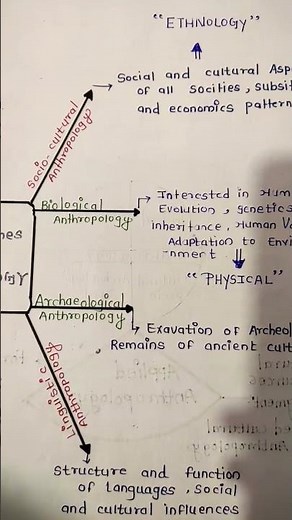 "ETHNOLOGY"
Social and cultural Asp
of all Socities, subsit
and economics pattern
Socio-cultural
Anthropology
Biological
Anthropology
Interested in Hum
Evolution, genetics
inheritance, Human Va
Adaptation to Envi
nment
"PHYSICAL"
Archaeological
Anthropology
Exavation of Archeol
Remains of ancient cult
Linguistic
Anthropology
Structure and function
of Languages, Social
and cultural influences